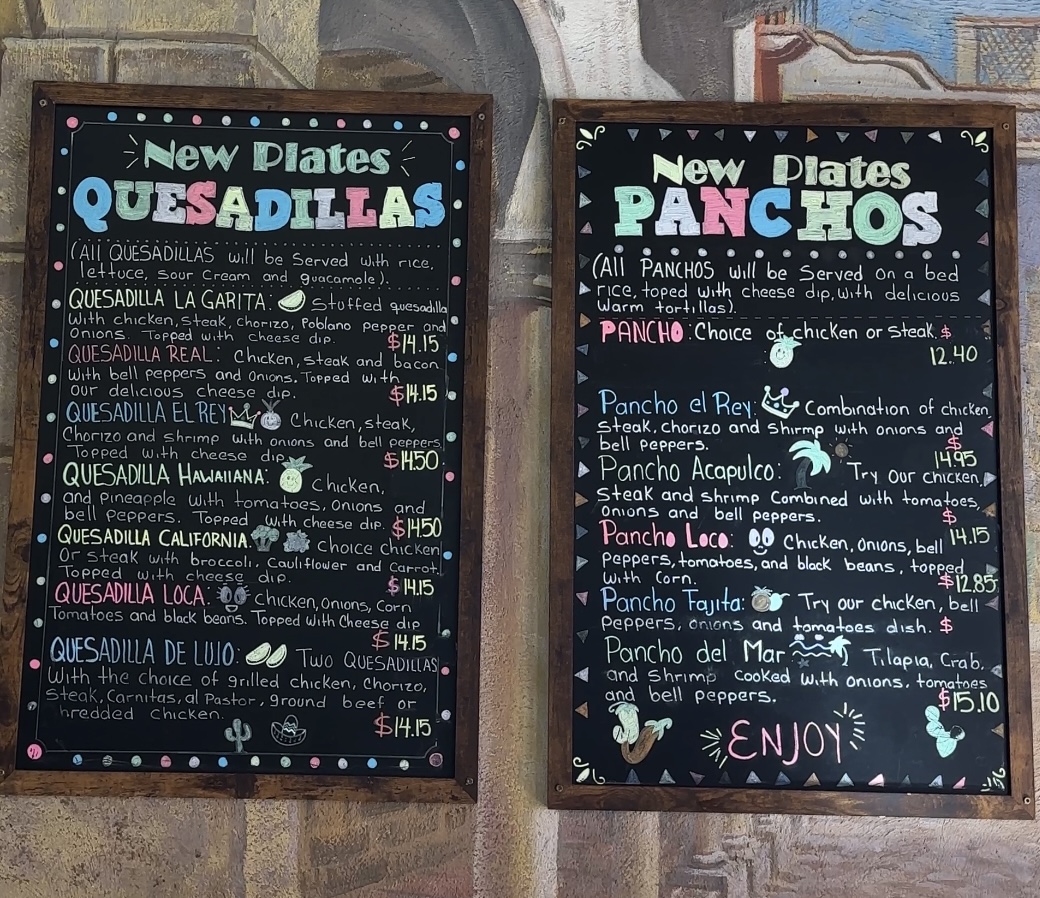 New Plates
QUESADILLAS
(All QUESADILLAS will be Served with rice,
lettuce, sour Cream and guacamole).
QUESADILLA LA GARITA: Stuffed quesadilla
with chicken, steak, Chorizo, Poblano pepper and
Onions. Topped with cheese dip. $14.15
QUESADILLA REAL: Chicken, steak and bacon
with bell peppers and Onions. Topped with
our delicious cheese dip. $14.15
QUESADILLA EL REY Chicken, steak,
Chorizo and shrimp with onions and bell peppers.
Topped with cheese dip. $14.50
QUESADILLA HAWAIIANA: Chicken,
and Pineapple with tomatoes, Onions and
bell peppers. Topped with cheese dip. $14.50
QUESADILLA CALIFORNIA: Choice chicken
Or steak with broccoli, Cauliflower and Carrot.
Topped with cheese dip. $14.15
QUESADILLA LOCA: Chicken, Onions, Corn
Tomatoes and black beans. Topped with Cheese dip
$14.15
QUESADILLA DE LUJO: Two QUESADILLAS
With the choice of grilled chicken, Chorizo,
Steak, Carnitas, al Pastor, ground beef or
hredded chicken. $14.15
New Plates
PANCHOS
(All PANCHOS will be Served on a bed
rice, toped with cheese dip, with delicious
warm tortillas).
PANCHO: Choice of chicken or steak. $
12.40
Pancho el Rey: Combination of chicken,
steak, chorizo and shirmp with onions and
bell peppers. $
14.95
Pancho Acapulco: Try our chicken,
Steak and shrimp Combined with tomatoes,
onions and bell peppers. $
14.15
Pancho Loco: Chicken, Onions, bell
Peppers, tomatoes, and black beans, topped
with Corn. $12.85
Pancho Fajita: Try our chicken, bell
Peppers, onions and tomatoes dish. $
Pancho del Mar Tilapia, Crab,
and Shrimp Cooked with onions, tomatoes
and bell peppers. $15.10
ENJOY